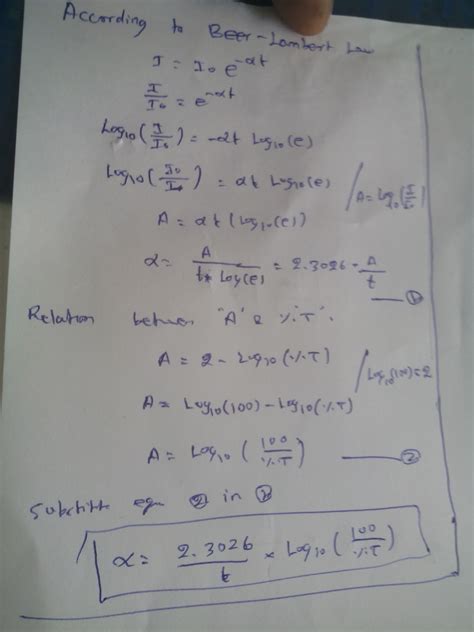 According to Beer-Lambert Law
I = I₀ e^-αt
I/I₀ = e^-αt
Log₁₀(I/I₀) = -αt Log₁₀(e)
Log₁₀(I₀/I₀) = αt Log₁₀(e)
A = αt (Log₁₀(e)) / A = Log₁₀(I/I₀)
α = A/(t* Log(e)) = 2.3026 · A/t —— ①
Relation between "A" & %T".
A = 2 - Log₁₀(%T) / Log₁₀(100) = 2
A = Log₁₀(100) - Log₁₀(%T)
A = Log₁₀(100/%T) —— ②
equ ② in
α = 2.3026/t × Log₁₀(100/%T)